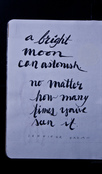 a bright
moon
can astonish
no matter
how many
times you've
seen it